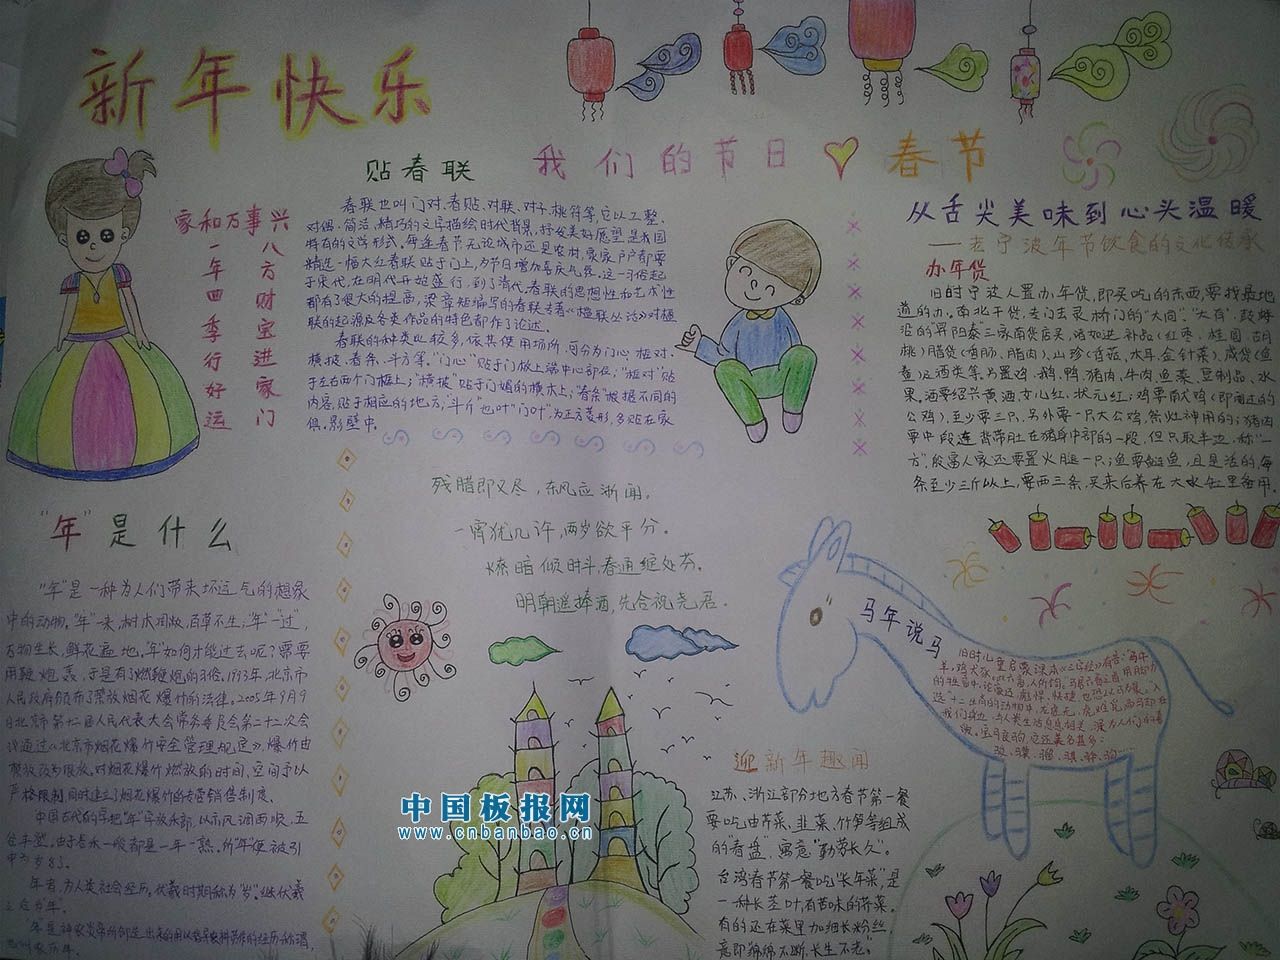 新年快乐
我们的节日 春节
家和万事兴
一年四季行好运
八方财宝进家门
贴春联
春联也叫门对、春贴、对联、对子、桃符等,它以工整、
对偶、简洁、精巧的文字描绘时代背景,抒发美好愿望,是我国
特有的文学形式。每逢春节无论城市还是农村,家家户户都要
精选一幅大红春联贴于门上,为节日增加喜庆气氛。这一习俗起
于宋代,在明代开始盛行,到了清代,春联的思想性和艺术性
都有了很大的提高,梁章矩编写的春联专著《楹联丛话》对楹
联的起源及各类作品的特色都作了论述。
春联的种类比较多,依其使用场所,可分为门心、框对、
横披、春条、斗方等。“门心”贴于门板上端中心部位;“框对”贴
于左右两个门框上;“横披”贴于门楣的横木上;“春条”根据不同的
内容,贴于相应的地方;“斗斤”也叶“门叶”,为正方菱形,多贴在家
俱、影壁中。
从舌尖美味到心头温暖
——老宁波年节饮食的文化传承
办年货
旧时宁波人置办年货,即买吃的东西,要找最地
道的办。南北干货,去门去灵桥门的“大同”、“大有”,鼓楼
沿的“昇阳泰”三家南货店买,诸如进补品(红枣、桂圆、胡
桃)腊货(香肠、腊肉)、山珍(莲芯、木耳、金针菜)、咸货(鱼
鲞)及酒类等。另置鸡、鹅、鸭、猪肉、牛肉、鱼菜、豆制品、水
果。酒要绍兴黄酒,女儿红、状元红;鸡要南大鸡(即阉过的
公鸡),至少要三只,另外要一只大公鸡,祭灶神用的;猪肉
要中段连背带肚在猪身中部的一段,但只取半边,称“一
方”,殷富人家还要置火腿一只;鱼要鲢鱼,且是活的,每
条至少三斤以上,要两三条,买来后养在大水缸里备用。
残腊即又尽,东风应渐闻。
一宵犹几许,两岁欲平分。
燎暗倾时斗,春通绽处芬。
明朝遥捧酒,先合祝尧君。
“年”是什么
“年”是一种为人们带来坏运气的想象
中的动物。“年”一来,树木凋敝,百草不生;“年”一“过”,
万物生长,鲜花遍地。“年”如何才能过去呢?需要
用鞭炮轰,于是有了燃鞭炮的习俗。1993年,北京市
人民政府颁布了禁放烟花爆竹的法律。2005年9月9
日北京市第十二届人民代表大会常务委员会第二十二次会
议通过《北京市烟花爆竹安全管理规定》,爆竹由
禁放改为限放,对烟花爆竹燃放的时间,空间予以
严格限制,同时建立了烟花爆竹的专营销售制度。
中国古代的字把“年”字放禾部,以示风调雨顺,五
谷丰登。由于谷禾一般都是一年一熟。所“年”便被引
申为岁名了。
年者,为人类社会经历,伏羲时期称为“岁”。继伏羲
之后为“年”。
马年说马
旧时儿童启蒙
迎新年趣闻
江苏、浙江部分地方春节第一餐
要吃由芹菜、韭菜、竹笋等组成
的春盘,寓意“勤劳长久”。
台湾春节第一餐吃“长年菜”,是
一种长茎叶,有苦味的芥菜。
有的还在菜里加细长粉丝,
意即“绵绵不断,长生不老”。
中国板报网
www.cnbanbao.cn